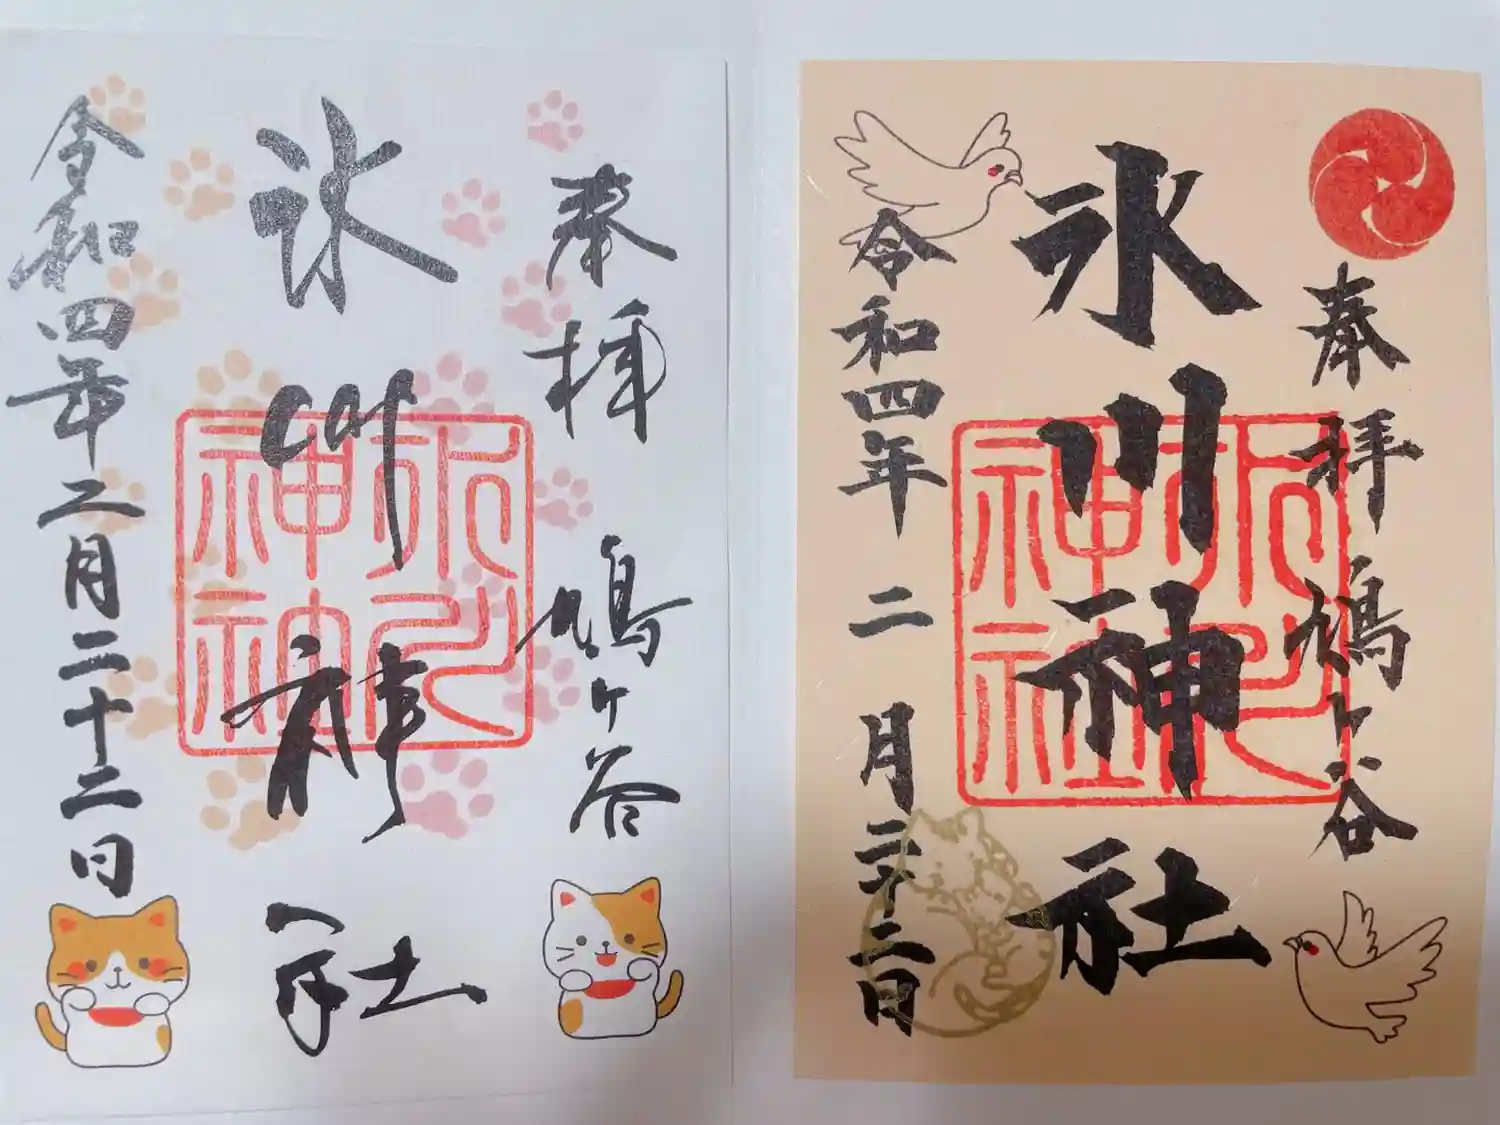 奉拝 鳩ヶ谷
氷川神社
氷川神社
令和四年二月二十二日
奉拝 鳩ヶ谷
氷川神社
氷川神社
令和四年二月二十二日